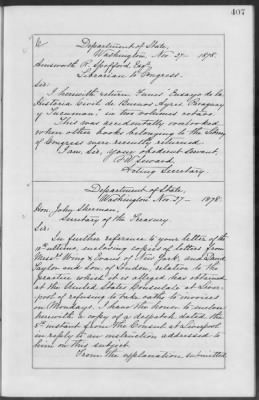 407
Department of State,
Washington, Nov. 27— 1878.
Ainsworth R. Spofford, Esq.
Librarian to Congress.
Sir:
I herewith return Funes' "Ensayo de la
Historia Civil de Buenos Ayres Paraguay
y Tucuman" in two volumes octavo.
This was accidentally overlooked
when other books belonging to the Library
of Congress were recently returned.
I am, Sir, your obedient Servant,
F. W. Seward,
Acting Secretary.
Department of State,
Washington, Nov. 27— 1878.
Hon. John Sherman,
Secretary of the Treasury.
Sir:
In further reference to your letter of the
ultimo, enclosing copies of letters from
Messrs Wing & Evans of New York, and
Taylor and Son, of London, relative to the
practice which it is alleged has obtained
at the United States Consulate at Liver-
pool of refusing to take oaths to invoices
on Mondays, I have the honor to enclose
herewith a copy of a despatch dated the
5th instant from the Consul at Liverpool
in reply to an instruction addressed to
him on this subject.
From the explanation submitted